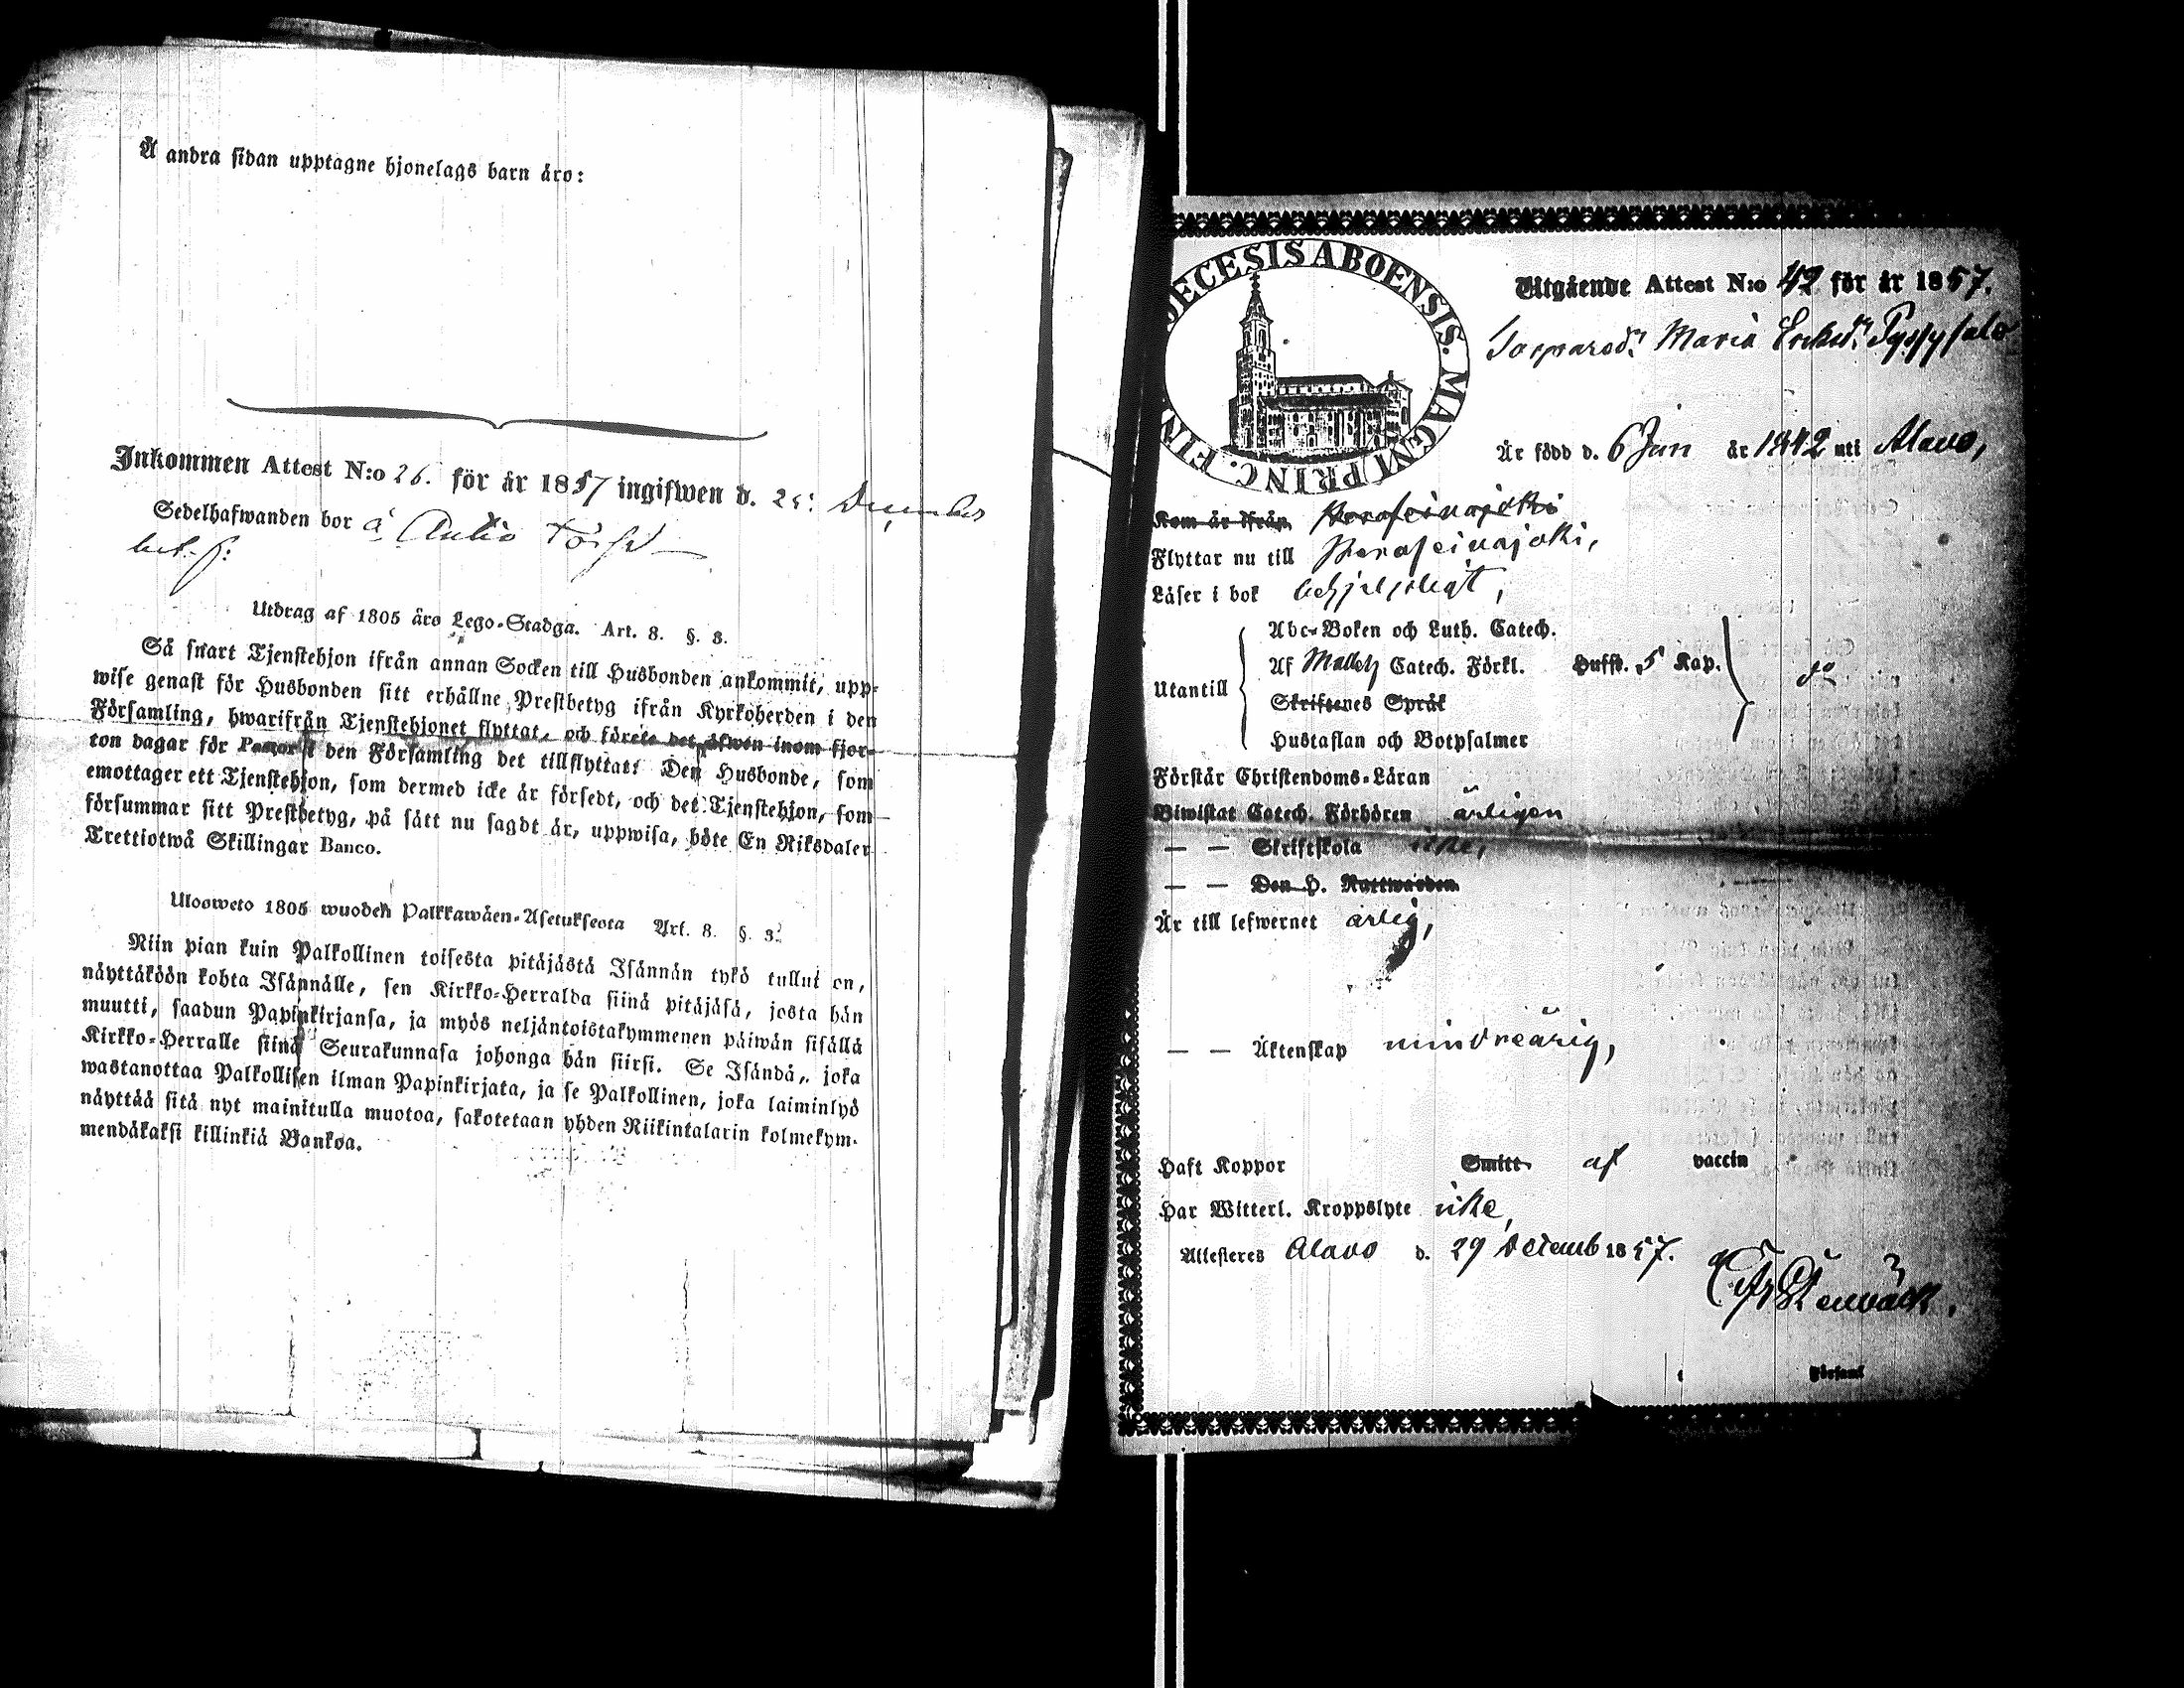 Å andra sidan upptagne hjonelags barn äro:
Inkommen Attest N:o 26. för år 1857 ingifwen d. 25: December
Sedelhafwanden bor å Anttio
Utdrag af 1805 års Lego-Stadga. Art. 8. §. 3.
Så snart Tjenstehjon ifrån annan Socken till Husbonden ankommit, upp-
wise genast för Husbonden sitt erhållne Prestbetyg ifrån Kyrkoherden i den
Församling, hwarifrån Tjenstehjonet flyttat, och förete det äfwen inom fjor-
ton dagar för Pastor i den Församling det tillflyttat: Den Husbonde, som
emottager ett Tjenstehjon, som dermed icke är försedt, och det Tjenstehjon, som
försummar sitt Prestbetyg, på sätt nu sagdt är, uppwisa, böte En Riksdaler
Trettiotwå Skillingar Banco.
Ulosweto 1805 wuoden Palkkawäen-Asetuksesta Art. 8. §. 3.
Niin pian kuin Palkollinen toisesta pitäjästä Isännän tykö tullut on,
näyttäköön kohta Isännälle, sen Kirkko-Herralda siinä pitäjäsä, josta hän
muutti, saadun Papinkirjansa, ja myös neljäntoistakymmenen päiwän sisällä
Kirkko-Herralle siinä Seurakunnasa johonga hän siirsi. Se Isändä, joka
wastanottaa Palkollisen ilman Papinkirjata, ja se Palkollinen, joka laiminlyö
näyttää sitä nyt mainitulla muotoa, sakotetaan yhden Riikintalarin kolmekym-
mendäkaksi killinkiä Bankoa.
DIOECESIS ABOENSIS. MAGNI PRINC. FIN
Utgående Attest N:o 42 för år 1857.
Maria
Är född d. 6 Jun år 1842 uti Alavo,
Kom är ifrån Peraseinajoki
Flyttar nu till Peraseinajoki,
Läser i bok behjelpligt,
Utantill
Abc-Boken och Luth. Catech.
Af Catech. Förkl. Hufst. 5 Kap.
Skriftenes Språk
Hustaflan och Botpsalmer
do
Förstår Christendoms-Läran
Biwistat Catech. Förhören årligen
— — Skriftskola icke,
— — Den H. Nattwarden
Är till lefwernet ärlig,
— — Äktenskap minderårig,
Haft Koppor Smitt af vaccin
Har Witterl. Kroppslyte icke,
Attesteres Alavo d. 29 Decemb 1857.
Fr Stenbäck.
Församl